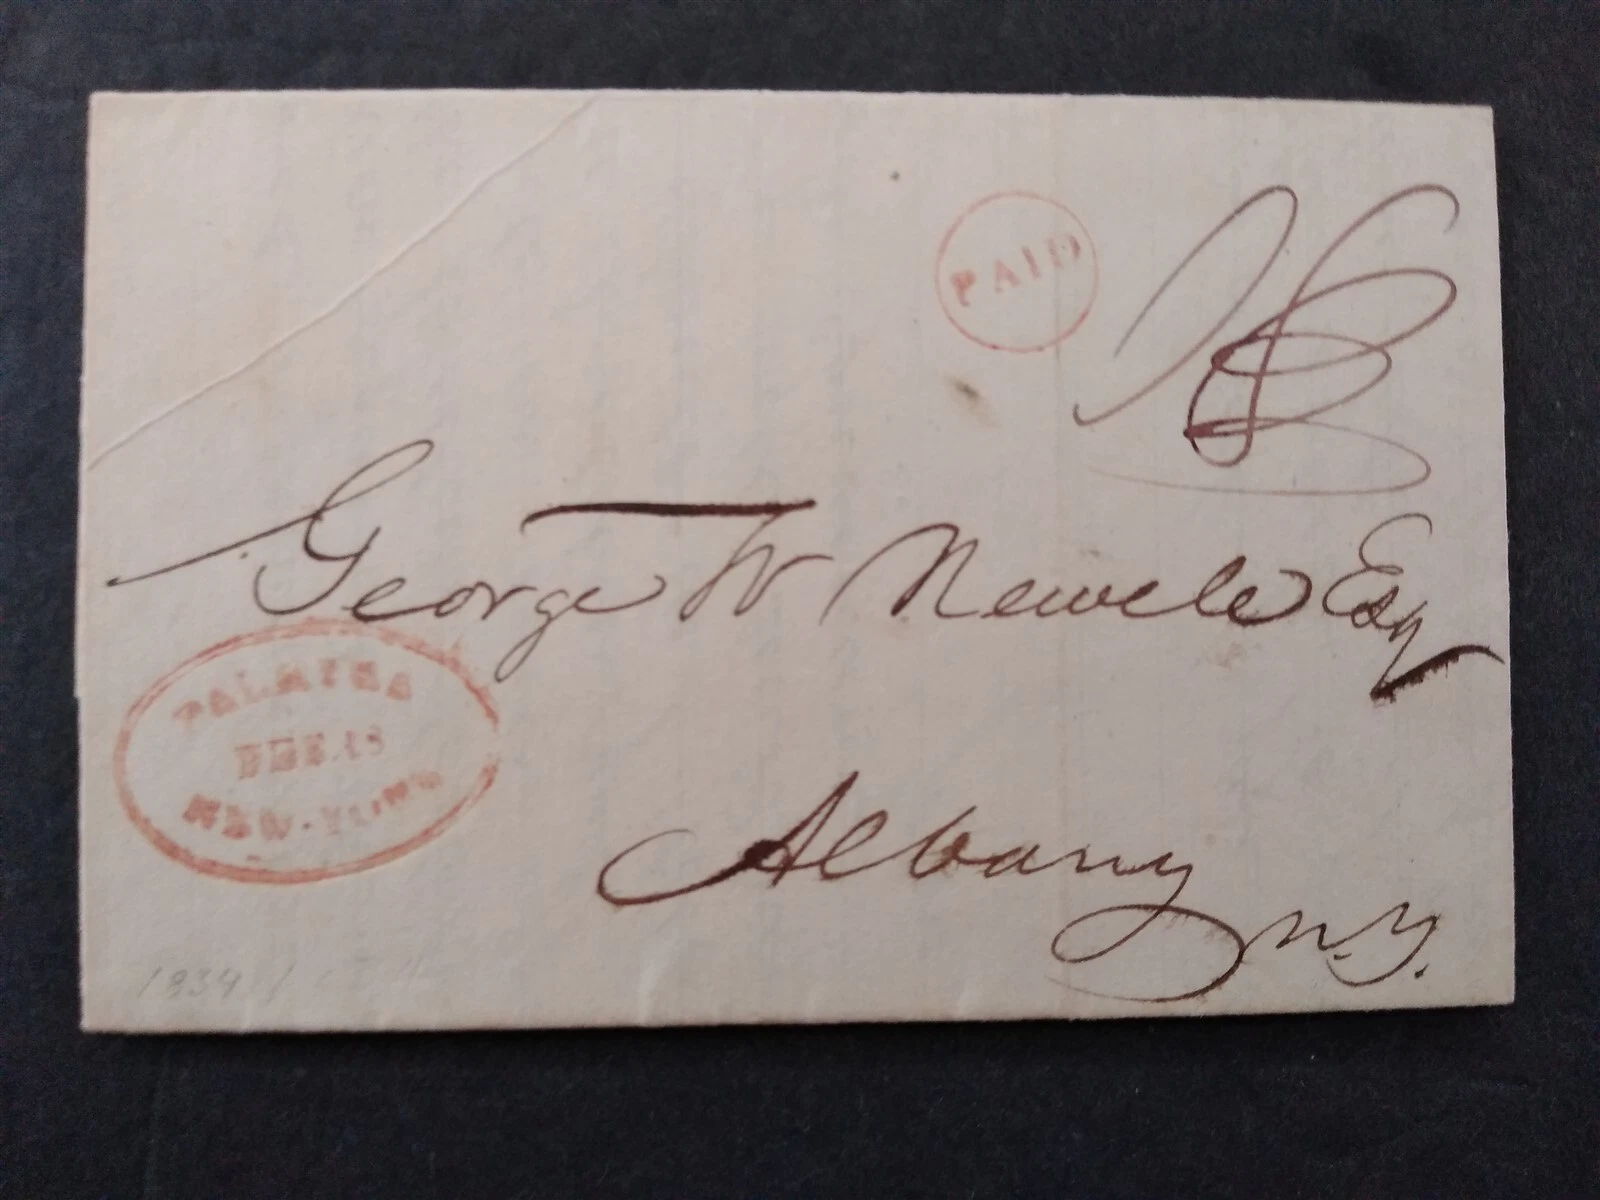 PAID
George W Newell Esq
PALMYRA
DEC. 18
NEW-YORK
Albany
N.Y.
1834